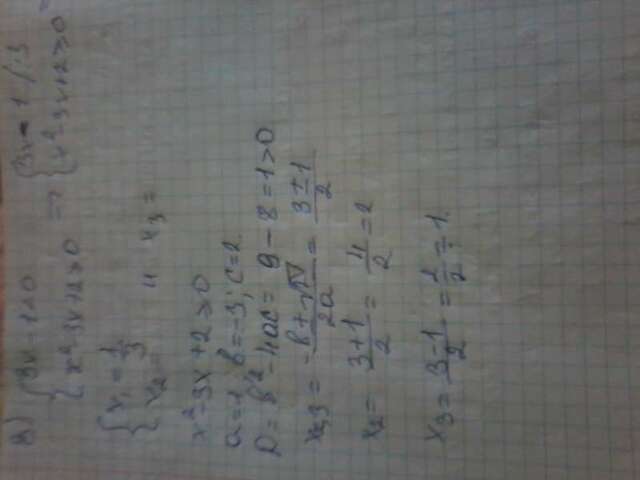 {3x-1>0
x²-3x+2≥0 => {3x = 1 /:3
x²-3x+2≥0
{x₁ = 1/3
x₂ = и x₃ =
x²-3x+2≥0
a=1; b=-3; c=2
D = b²-4ac = 9-8=1>0
x₂,₃ = (-b±√D)/2a = (3±1)/2
x₂ = (3+1)/2 = 4/2 = 2
x₃ = (3-1)/2 = 2/2 = 1.